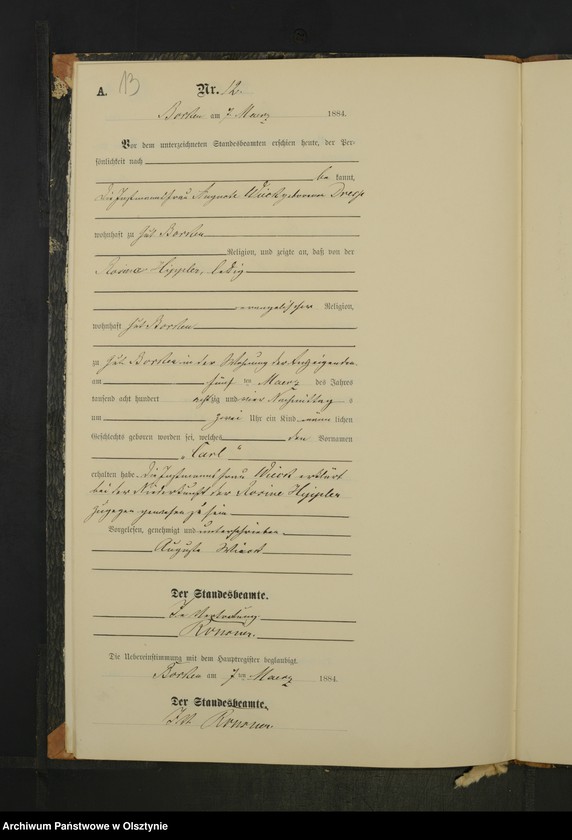 A. 13 Nr. 12.
Borken am 7. Maerz 1884.
Vor dem unterzeichneten Standesbeamten erschien heute, der Per-
sönlichkeit nach
be kannt,
die Instmannsfrau Auguste geborene
wohnhaft zu Borken
Religion, und zeigte an, daß von der
Rosine Hippler, ledig
evangelischer Religion,
wohnhaft Borken
zu Borken in der Wohnung der Anzeigenden
am fünf ten Maerz des Jahres
tausend acht hundert achtzig und vier Nachmittag s
um zwei Uhr ein Kind männ lichen
Geschlechts geboren worden sei, welches den Vornamen
„Carl“
erhalten habe. Die Instmannsfrau erklärt
bei der Niederkunft der Rosine Hippler
zugegen gewesen zu sein
Vorgelesen, genehmigt und unterschrieben
Auguste
Der Standesbeamte.
In Vertretung.
Die Uebereinstimmung mit dem Hauptregister beglaubigt.
Borken am 7ten Maerz 1884.
Der Standesbeamte.
Archiwum Państwowe w Olsztynie